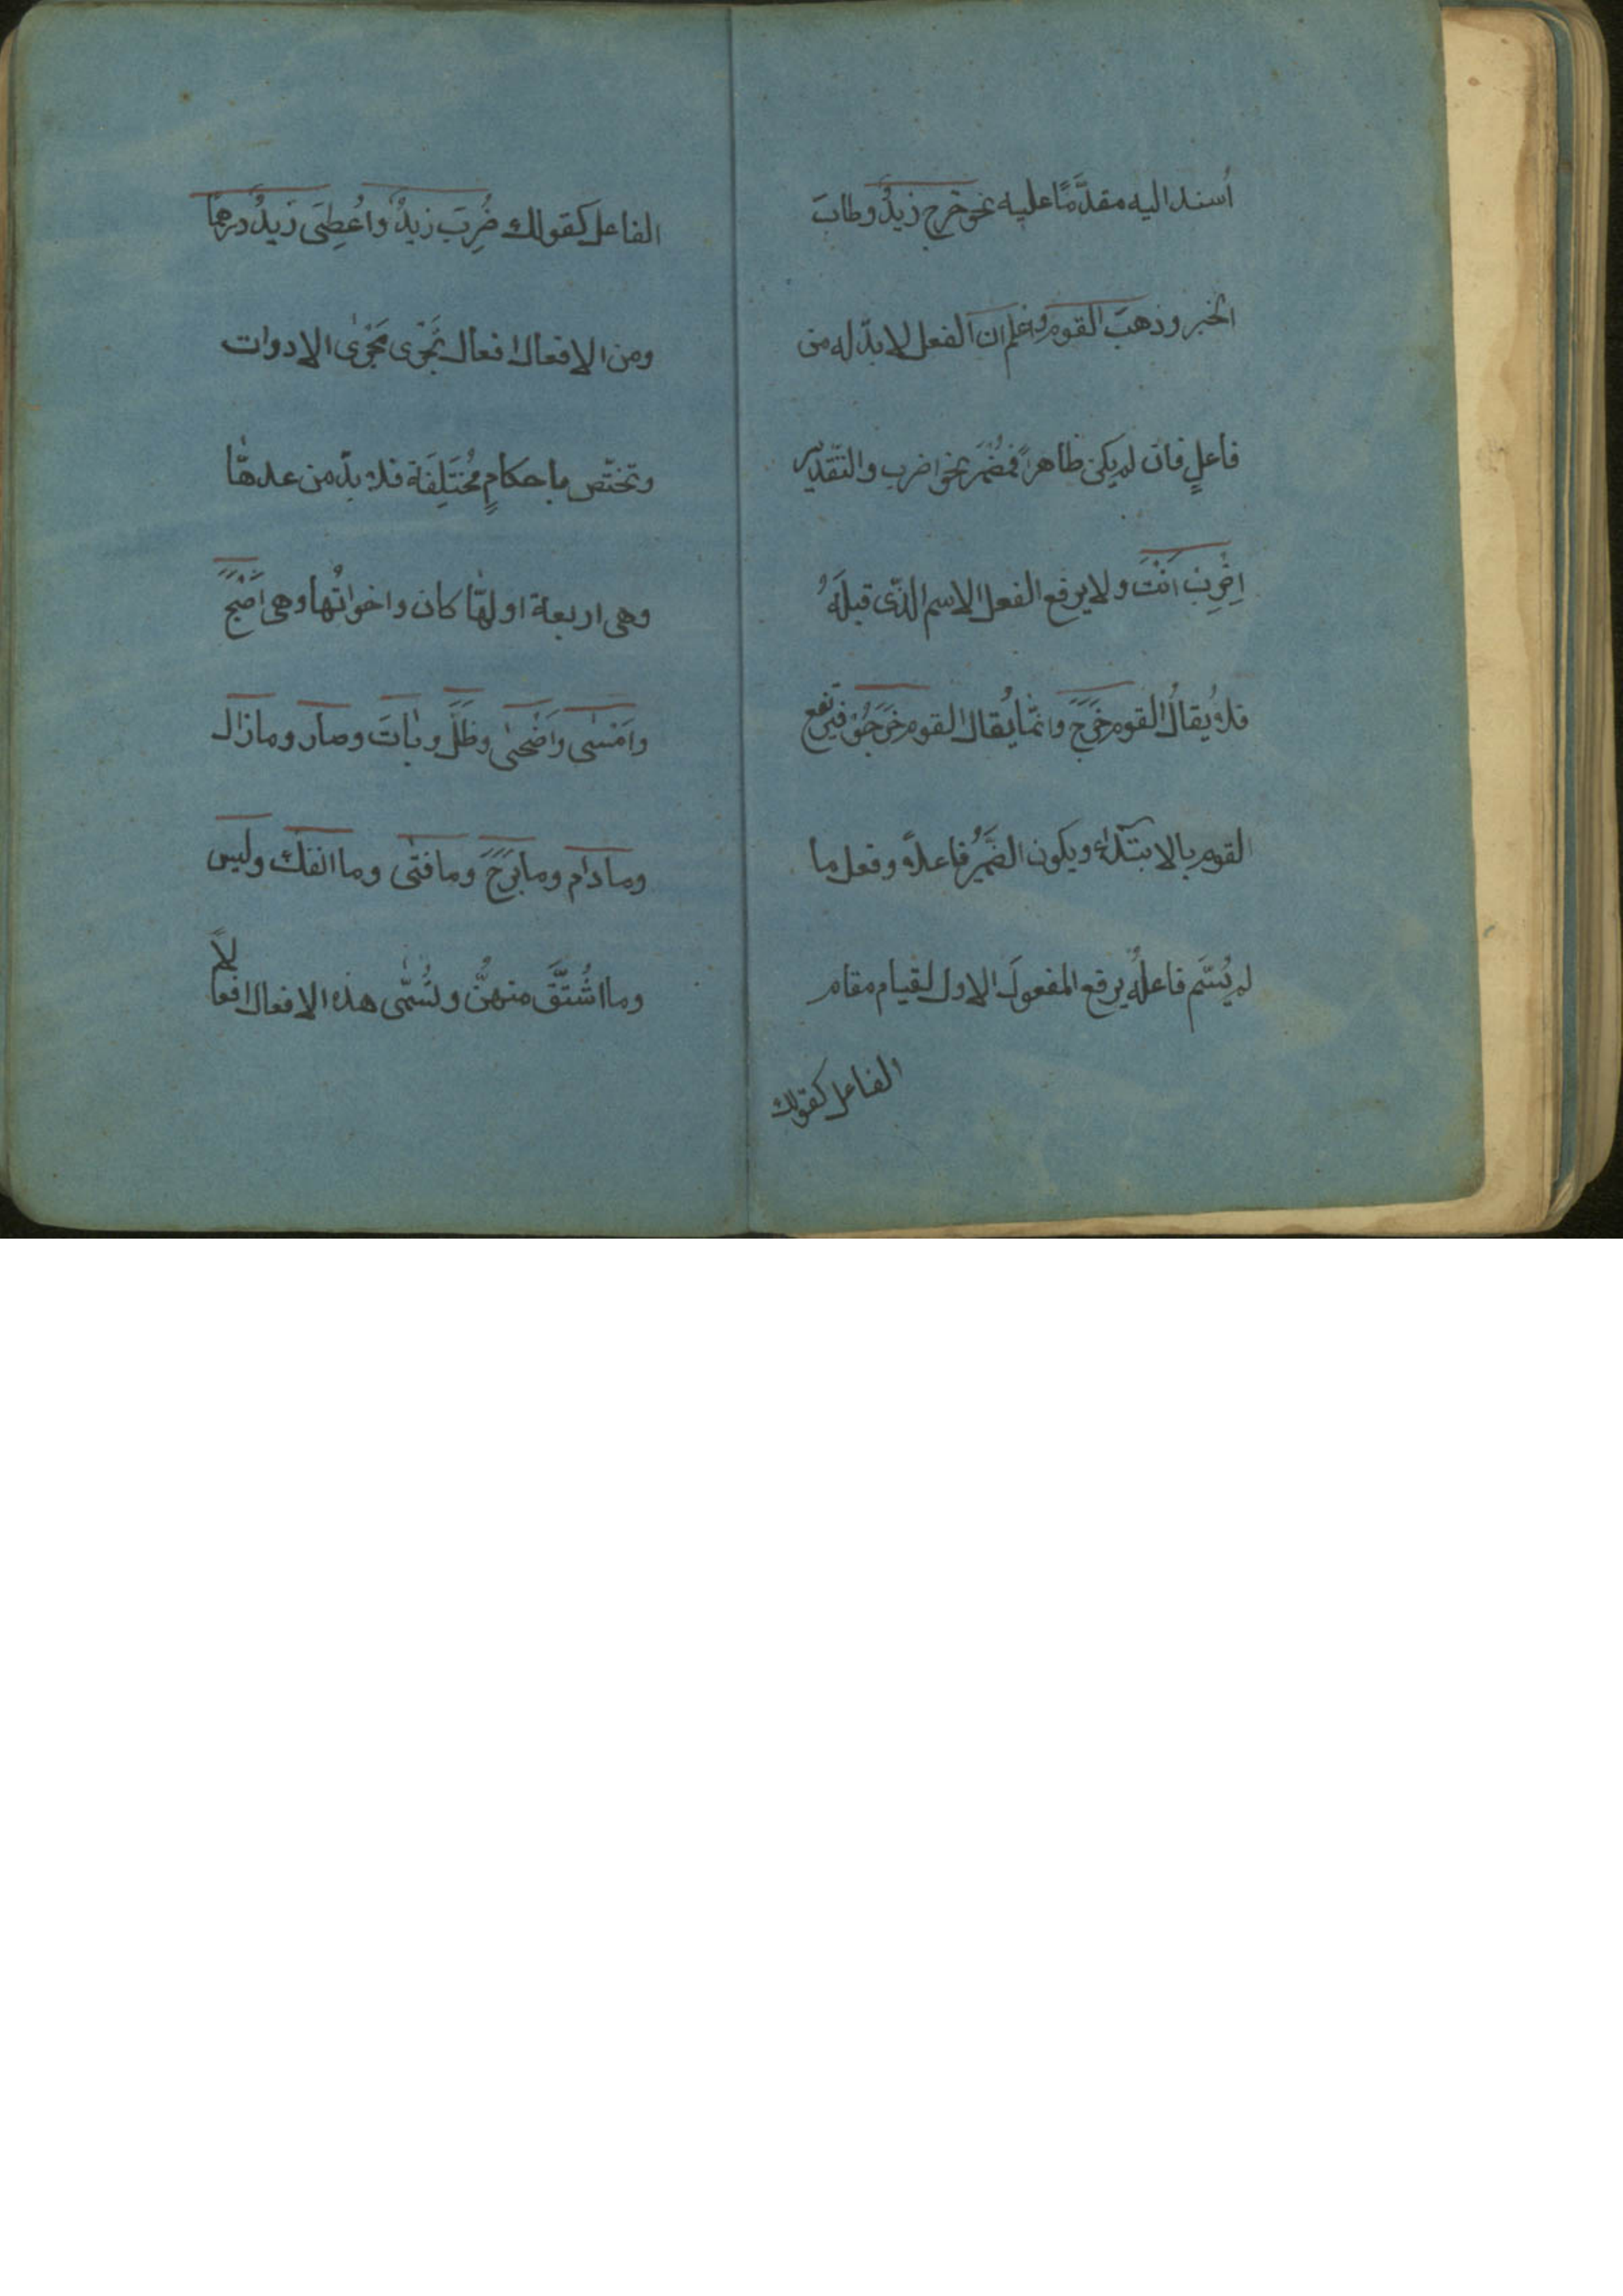 اُسند اليه مقدَّمًا عليه نحو خرج زيدٌ وطابَ
الخبر وذهبَ القوم واعلم ان الفعل لا بدّ له من
فاعلٍ فان لم يكن ظاهراً فمُضْمَر نحو اضرب والتّقدير
اِضْرِبْ اَنْتَ ولا يرفع الفعل الاسم الذّى قبلَهُ
فلا يُقالُ القوم خَرَجَ وانّما يُقال القوم خَرَجُوْا فيرتفع
القوم بالابتداء ويكون الضَّمِيُر فاعلاً وفعل ما
لم يُسَّم فاعلُهُ يرفع المفعولَ الاول لقيام مقام
الفاعل كقولك
الفاعل كقولك ضُرِبَ زيدٌ واُعْطِىَ زيدٌ درهمًا
ومن الافعال افعال تَجْرى مَجْرٰى الادوات
وتختّص باحكامٍ مُخْتَلِفَة فلا بدّ من عدهّا
وهى اربعة اولهّا كان واخواتُها وهى اَصْبَحَ
واَمْسٰى واَضْحىٰ وظَلَّ وباتَ وصار وما زال
وما دام وما بَرَحَ وما فتى وما انفك وليس
وما اشْتُقَّ منهنُّ ولتُسّمى هذه الافعال افعالاً